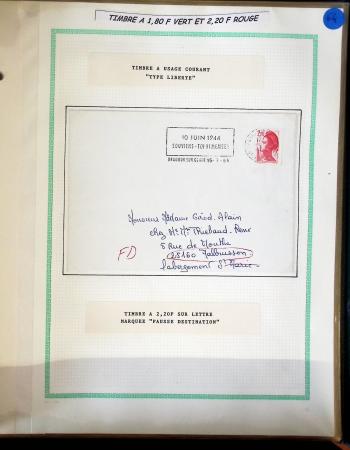 TIMBRE A 1,80 F VERT ET 2,20 F ROUGE
TIMBRE A USAGE COURANT
"TYPE LIBERTE"
10 JUIN 1944
SOUVIENS-TOI
ORADOUR SUR GLANE
Monsieur Madame Girod. Alain
chez Mr Mme Thiebaud. René
8 Rue de Mouthe
25160 Malbuisson
Labergement Ste Marie
FD
TIMBRE A 2,20F SUR LETTRE
MARQUEE "FAUSSE DESTINATION"